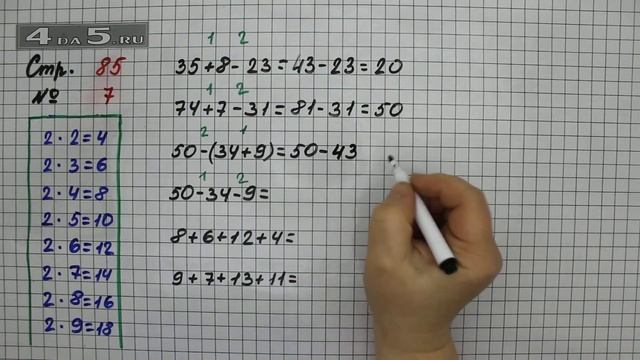 4DA5.RU
Стр. 85
№ 7
2 · 2 = 4
2 · 3 = 6
2 · 4 = 8
2 · 5 = 10
2 · 6 = 12
2 · 7 = 14
2 · 8 = 16
2 · 9 = 18
1 2
35 + 8 - 23 = 43 - 23 = 20
1 2
74 + 7 - 31 = 81 - 31 = 50
2 1
50 - (34 + 9) = 50 - 43
1 2
50 - 34 - 9 =
8 + 6 + 12 + 4 =
9 + 7 + 13 + 11 =